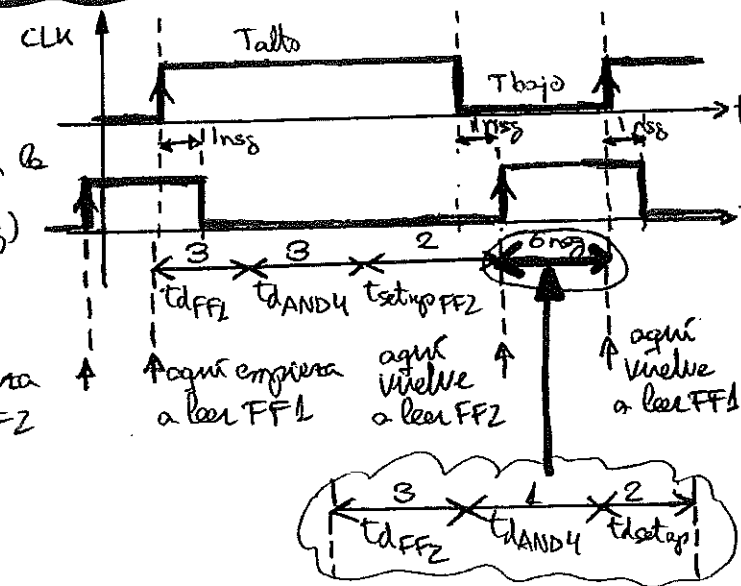 CLK
Talto
Tbajo
t
1nsg
1nsg
1nsg
3 3 2 6nsg
tdFF1 tdAND4 tsetupFF2
aquí empieza
a leer FF1
aquí
vuelve
a leer FF2
aquí
vuelve
a leer FF1
3 1 2
tdFF2 tdAND4 tdsetup